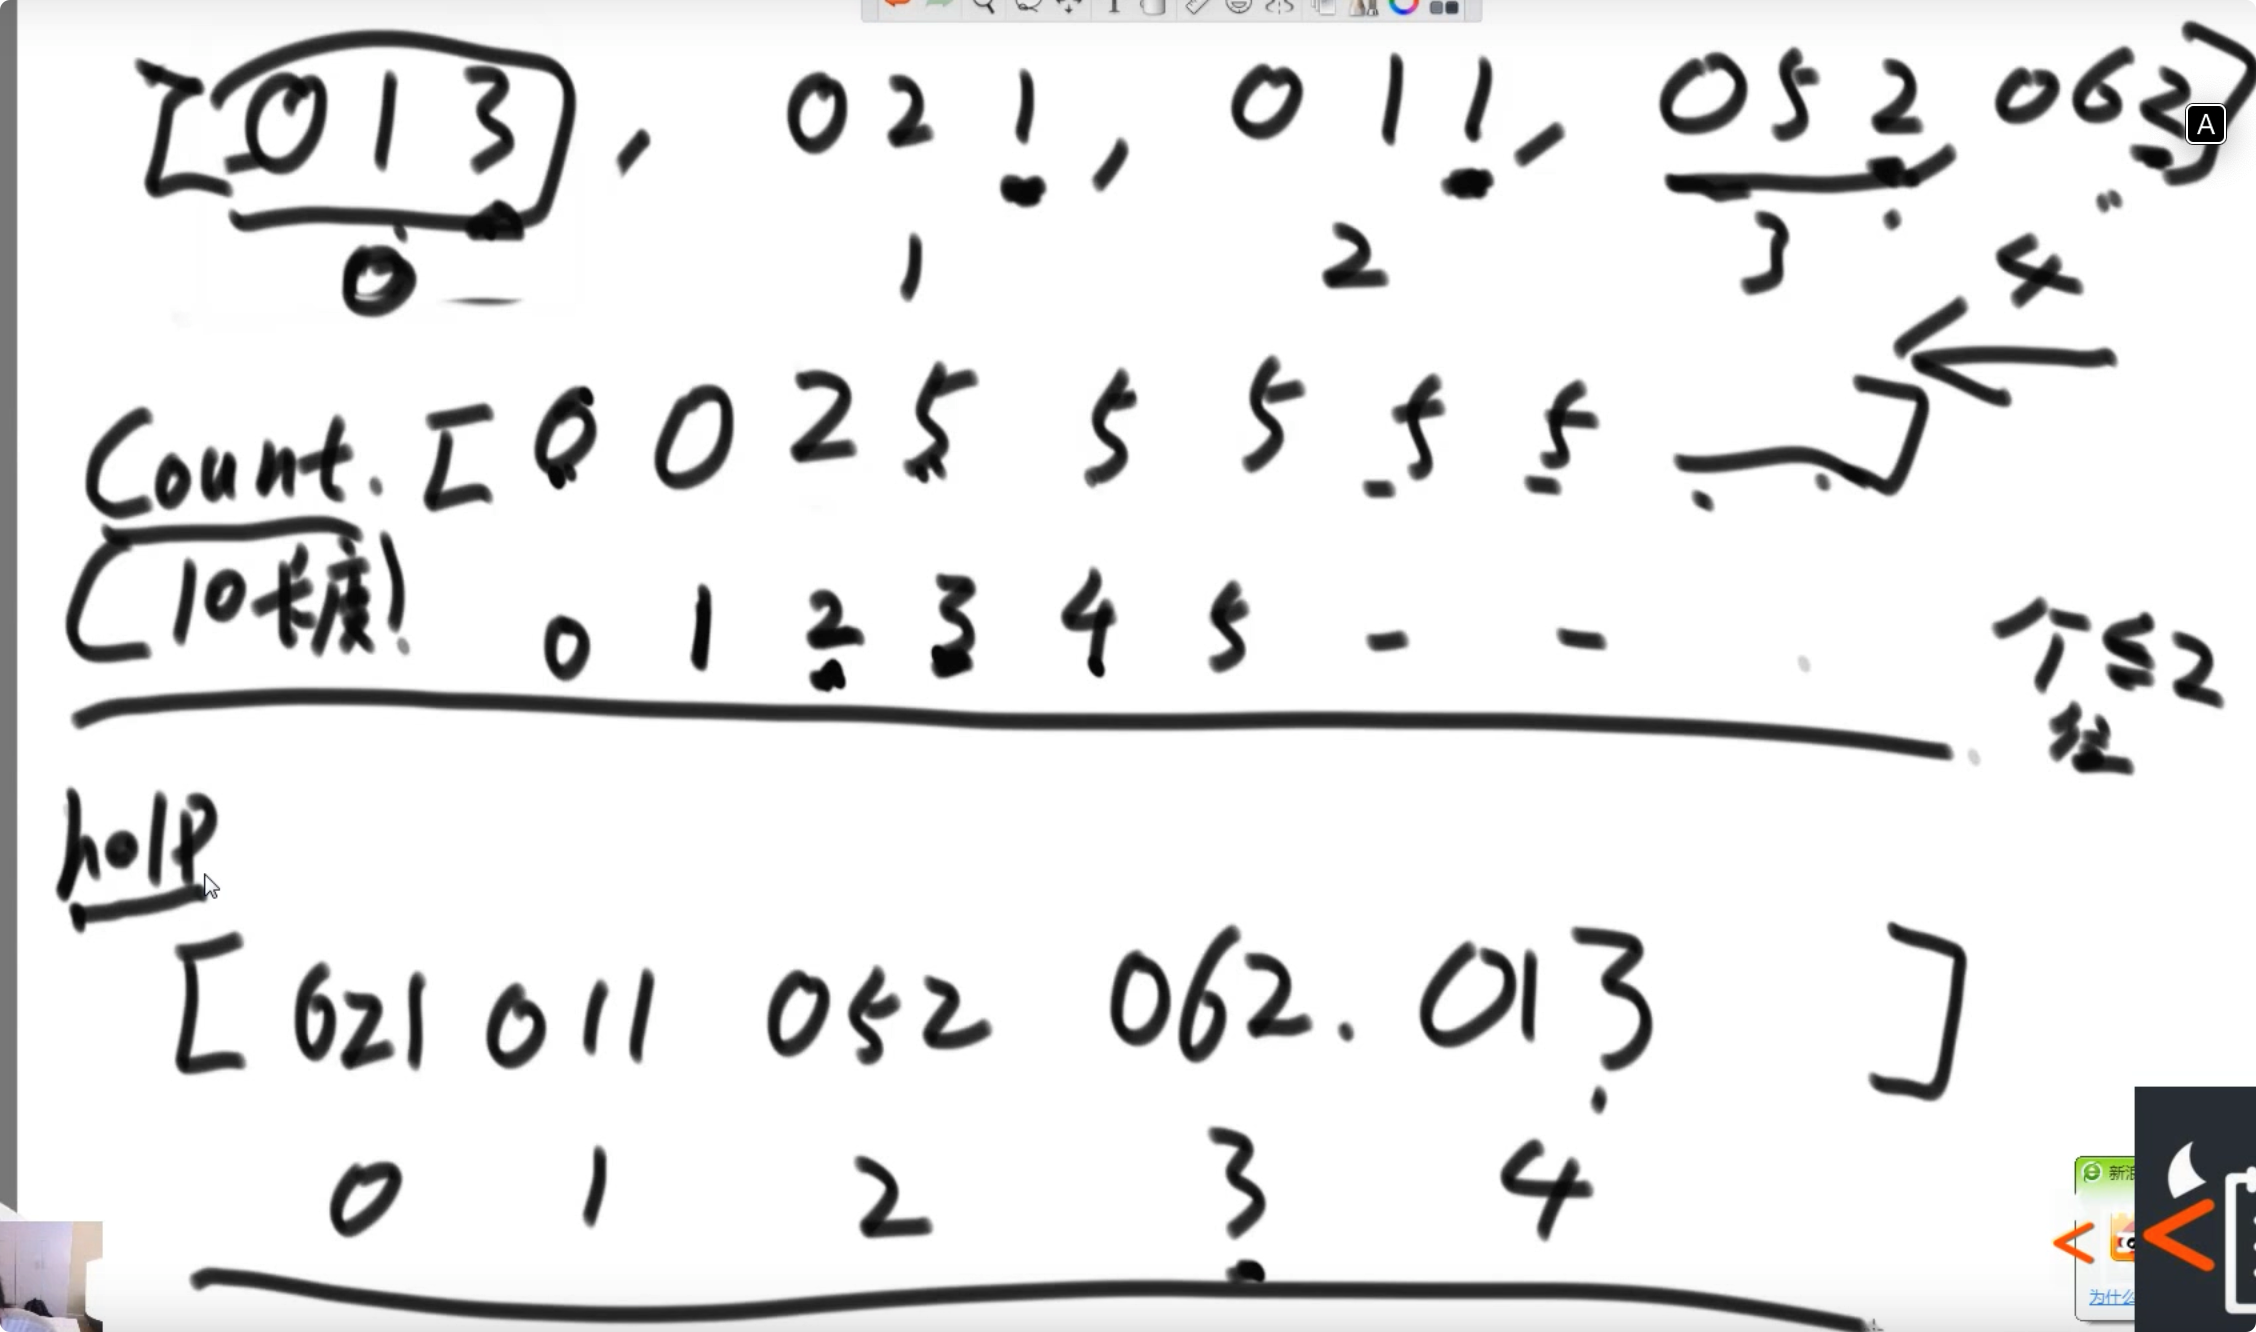 [013, 021, 011, 052, 062]
0 1 2 3 4
Count. [0 0 2 5 5 5 5 5 ]
(10长度) 0 1 2 3 4 5 - - 个≤2
help
[021 011 052 062. 013 ]
0 1 2 3 4
A
新浪
为什么